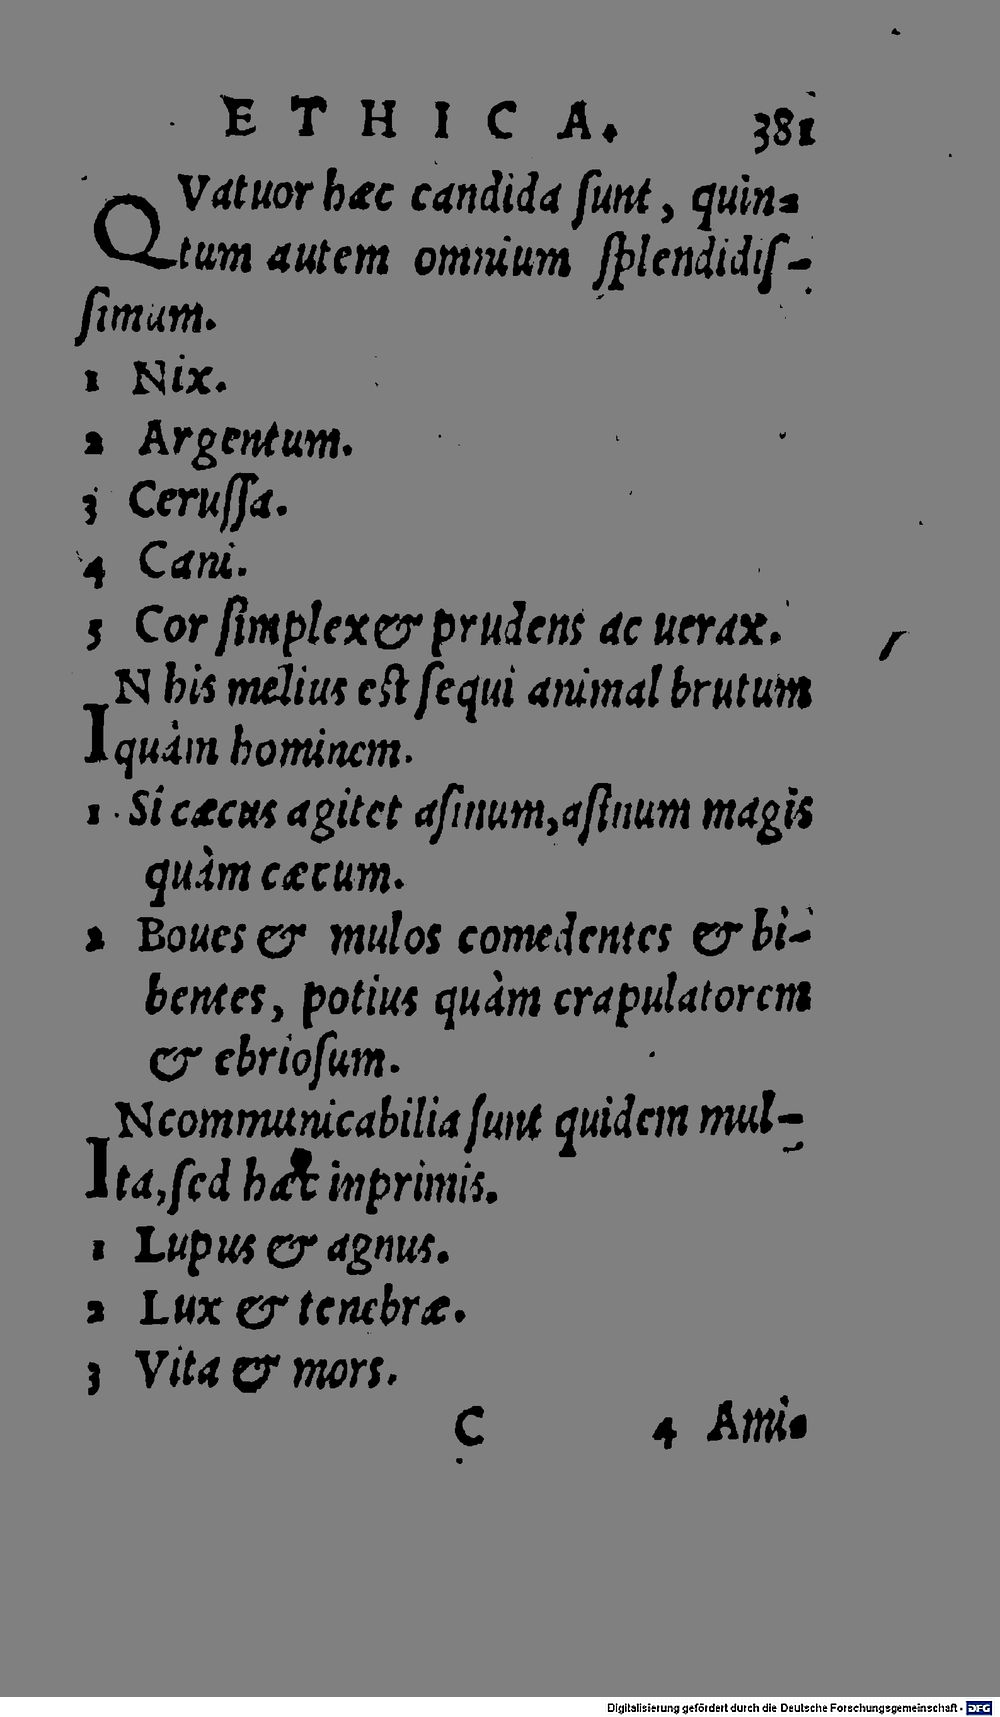 ETHICA. 381
QVatuor hæc candida ſunt, quin-
tum autem omnium ſplendidiſ-
ſimum.
1 Nix.
2 Argentum.
3 Ceruſſa.
4 Cani.
5 Cor ſimplex & prudens ac uerax.
IN his melius eſt ſequi animal brutum
quàm hominem.
1 Si cæcus agitet aſinum, aſinum magis
quàm cæcum.
2 Boues & mulos comedentes & bi-
bentes, potius quàm crapulatorem
& ebrioſum.
INcommunicabilia ſunt quidem mul-
ta, ſed hæc inprimis.
1 Lupus & agnus.
2 Lux & tenebræ.
3 Vita & mors.
C 4 Ami-
Digitalisierung gefördert durch die Deutsche Forschungsgemeinschaft - DFG